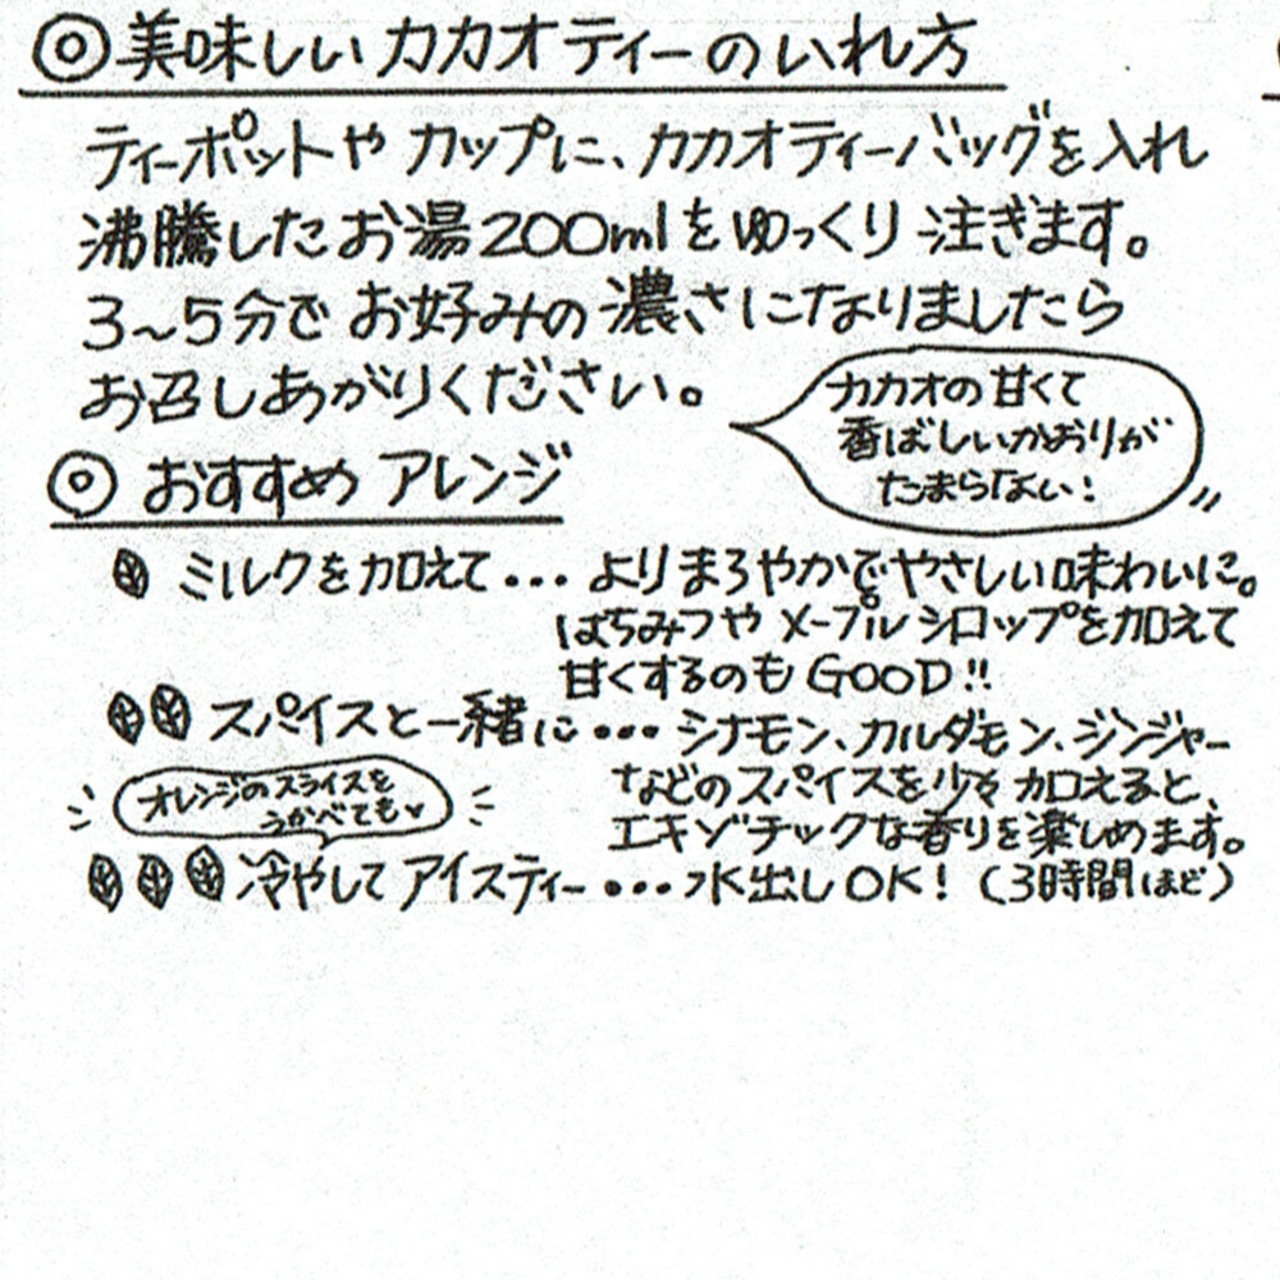 ◎美味しいカカオティーのいれ方
ティーポットや カップに、カカオティーバッグを入れ
沸騰したお湯200mlをゆっくり注ぎます。
3~5分で お好みの濃さになりましたら
お召しあがりください。
カカオの甘くて
香ばしいかおりが
たまらない!
◎ おすすめ アレンジ
ミルクを加えて... よりまろやかでやさしい味わいに。
はちみつや メープルシロップを加えて
甘くするのも GOOD!!
スパイスと一緒に... シナモン、カルダモン、ジンジャー
などのスパイスを少々加えると、
エキゾチックな香りを楽しめます。
オレンジのスライスを
うかべても♥
冷やして アイスティー... 水出しOK! (3時間ほど)